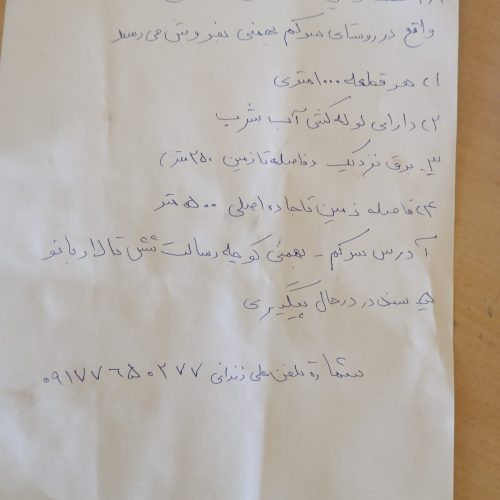 واقع در روستای سرکم بهمنی بفروش می رسد
۱) هر قطعه ۱۰۰۰ متری
۲) دارای لوله کشی آب شرب
۳. برق نزدیک (فاصله تا زمین ۲۵۰ متر)
۴) فاصله زمین تا جاده اصلی ۵۰۰ متر
آدرس سرکم - بهمنی کوچه رسالت شش تالار بانو
۵ سند در درحال پیگیری
شماره تلفن علی زندانی ۰۹۱۷۷۶۵۰۲۷۷